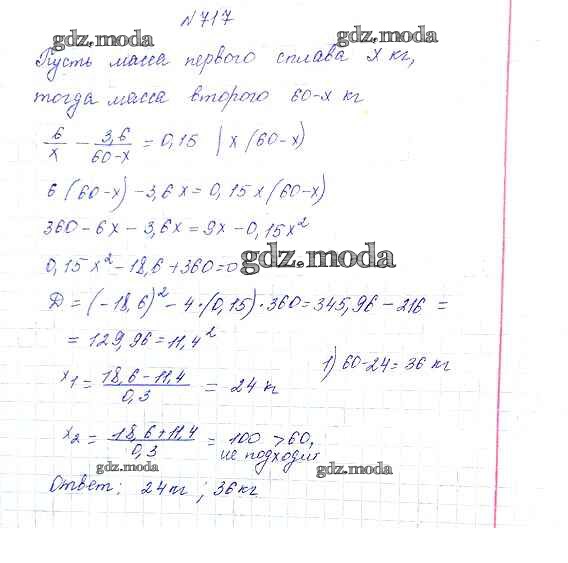 №717
gdz.moda gdz.moda
Пусть масса первого сплава x кг,
тогда масса второго 60-x кг
6/x - 3,6/60-x = 0,15 | x (60-x)
6 (60-x) - 3,6x = 0,15x (60-x)
360 - 6x - 3,6x = 9x - 0,15x²
0,15x² - 18,6 + 360 = 0 gdz.moda
D = (-18,6)² - 4·(0,15)·360 = 345,96 - 216 =
= 129,96 = 11,4²
x₁ = 18,6 - 11,4 / 0,3 = 24 кг 1) 60-24 = 36 кг
x₂ = 18,6 + 11,4 / 0,3 = 100 > 60,
не подходит
gdz.moda gdz.moda
Ответ: 24 кг; 36 кг